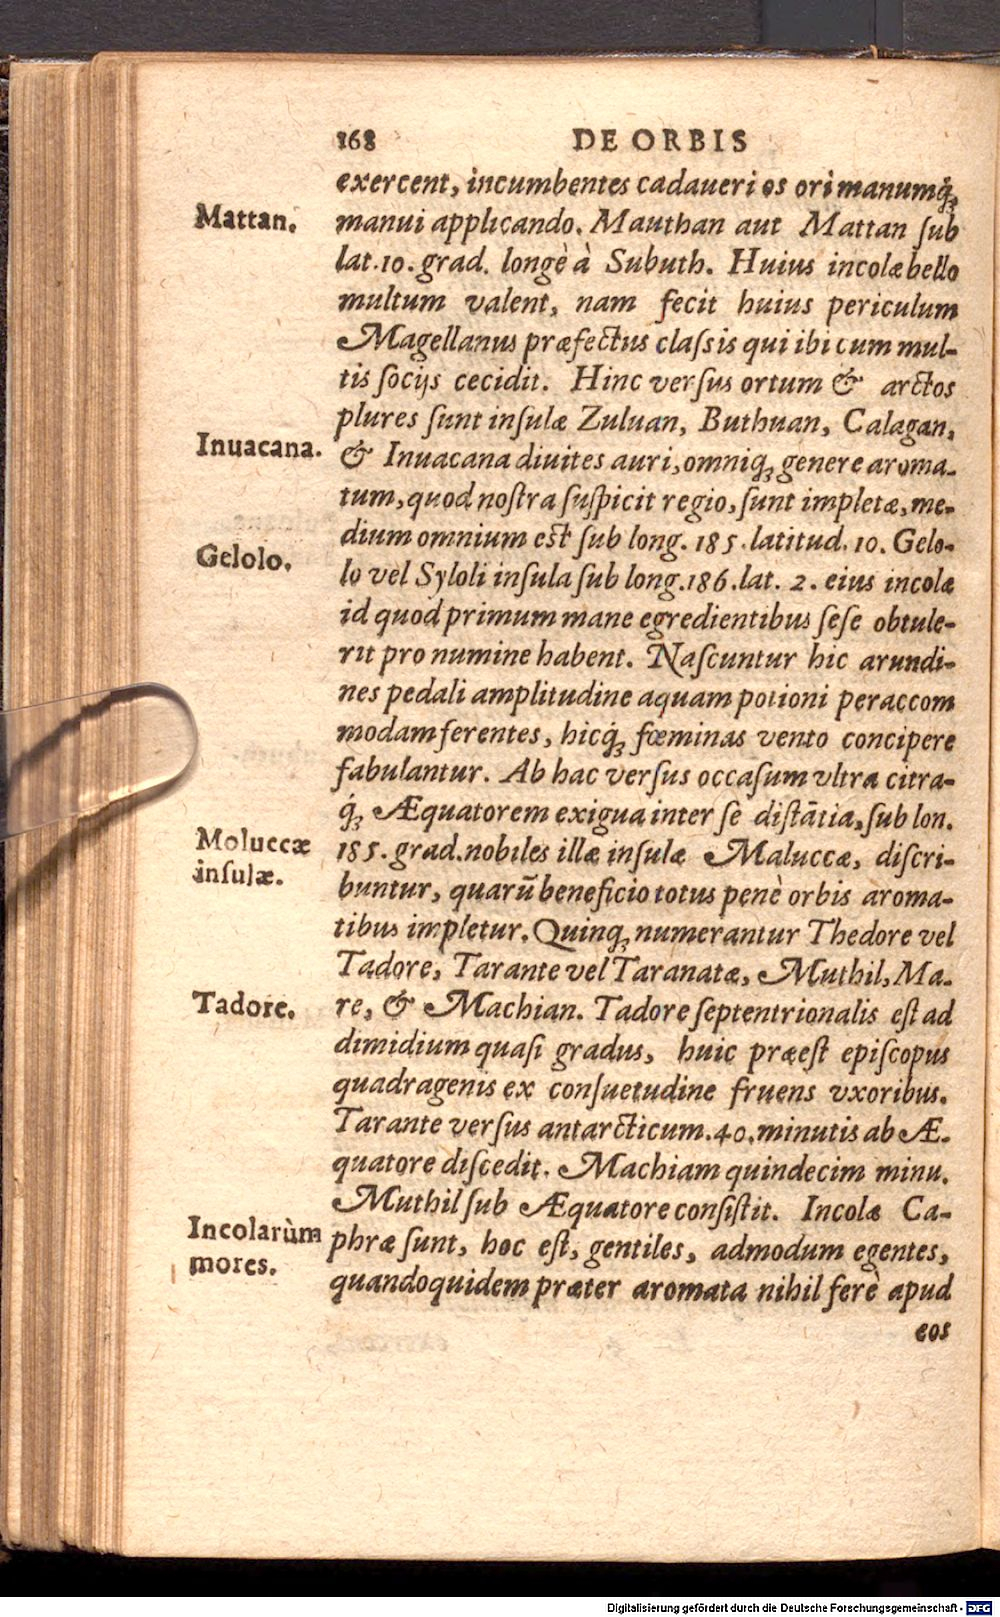 168 DE ORBIS
exercent, incumbentes cadaueri os ori manumq́;
Mattan.
manui applicando. Mauthan aut Mattan ſub
lat.10. grad. longè à Subuth. Huius incolæ bello
multum valent, nam fecit huius periculum
Magellanus præfectus claſsis qui ibi cum mul-
tis ſocijs cecidit. Hinc verſus ortum & arctos
plures ſunt inſulæ Zuluan, Buthuan, Calagan,
Inuacana.
& Inuacana diuites auri, omniq; genere aroma-
tum, quod noſtra ſuſpicit regio, ſunt impletæ, me-
dium omnium eſt ſub long. 185. latitud. 10. Gelo-
Gelolo.
lo vel Syloli inſula ſub long.186. lat. 2. eius incolæ
id quod primum mane egredientibus ſeſe obtule-
rit pro numine habent. Naſcuntur hic arundi-
nes pedali amplitudine aquam potioni peraccom
modam ferentes, hicq́; fœminas vento concipere
fabulantur. Ab hac verſus occaſum vltra citra-
q́; Æquatorem exigua inter ſe diſtātia, ſub lon.
Moluccæ
inſulæ.
185. grad. nobiles illæ inſulæ Maluccæ, diſcri-
buntur, quarū beneficio totus penè orbis aroma-
tibus impletur. Quinq; numerantur Thedore vel
Tadore, Tarante vel Taranatæ, Muthil, Ma-
Tadore.
re, & Machian. Tadore ſeptentrionalis eſt ad
dimidium quaſi gradus, huic præeſt epiſcopus
quadragenis ex conſuetudine fruens vxoribus.
Tarante verſus antarcticum. 40. minutis ab Æ-
quatore diſcedit. Machiam quindecim minu.
Muthil ſub Æquatore conſiſtit. Incolæ Ca-
Incolarùm
mores.
phræ ſunt, hoc eſt, gentiles, admodum egentes,
quandoquidem præter aromata nihil ferè apud
eos
Digitalisierung gefördert durch die Deutsche Forschungsgemeinschaft - DFG